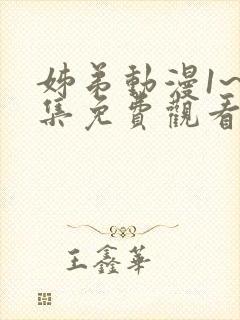 姊弟動漫1~
集免費觀看
王鑫華